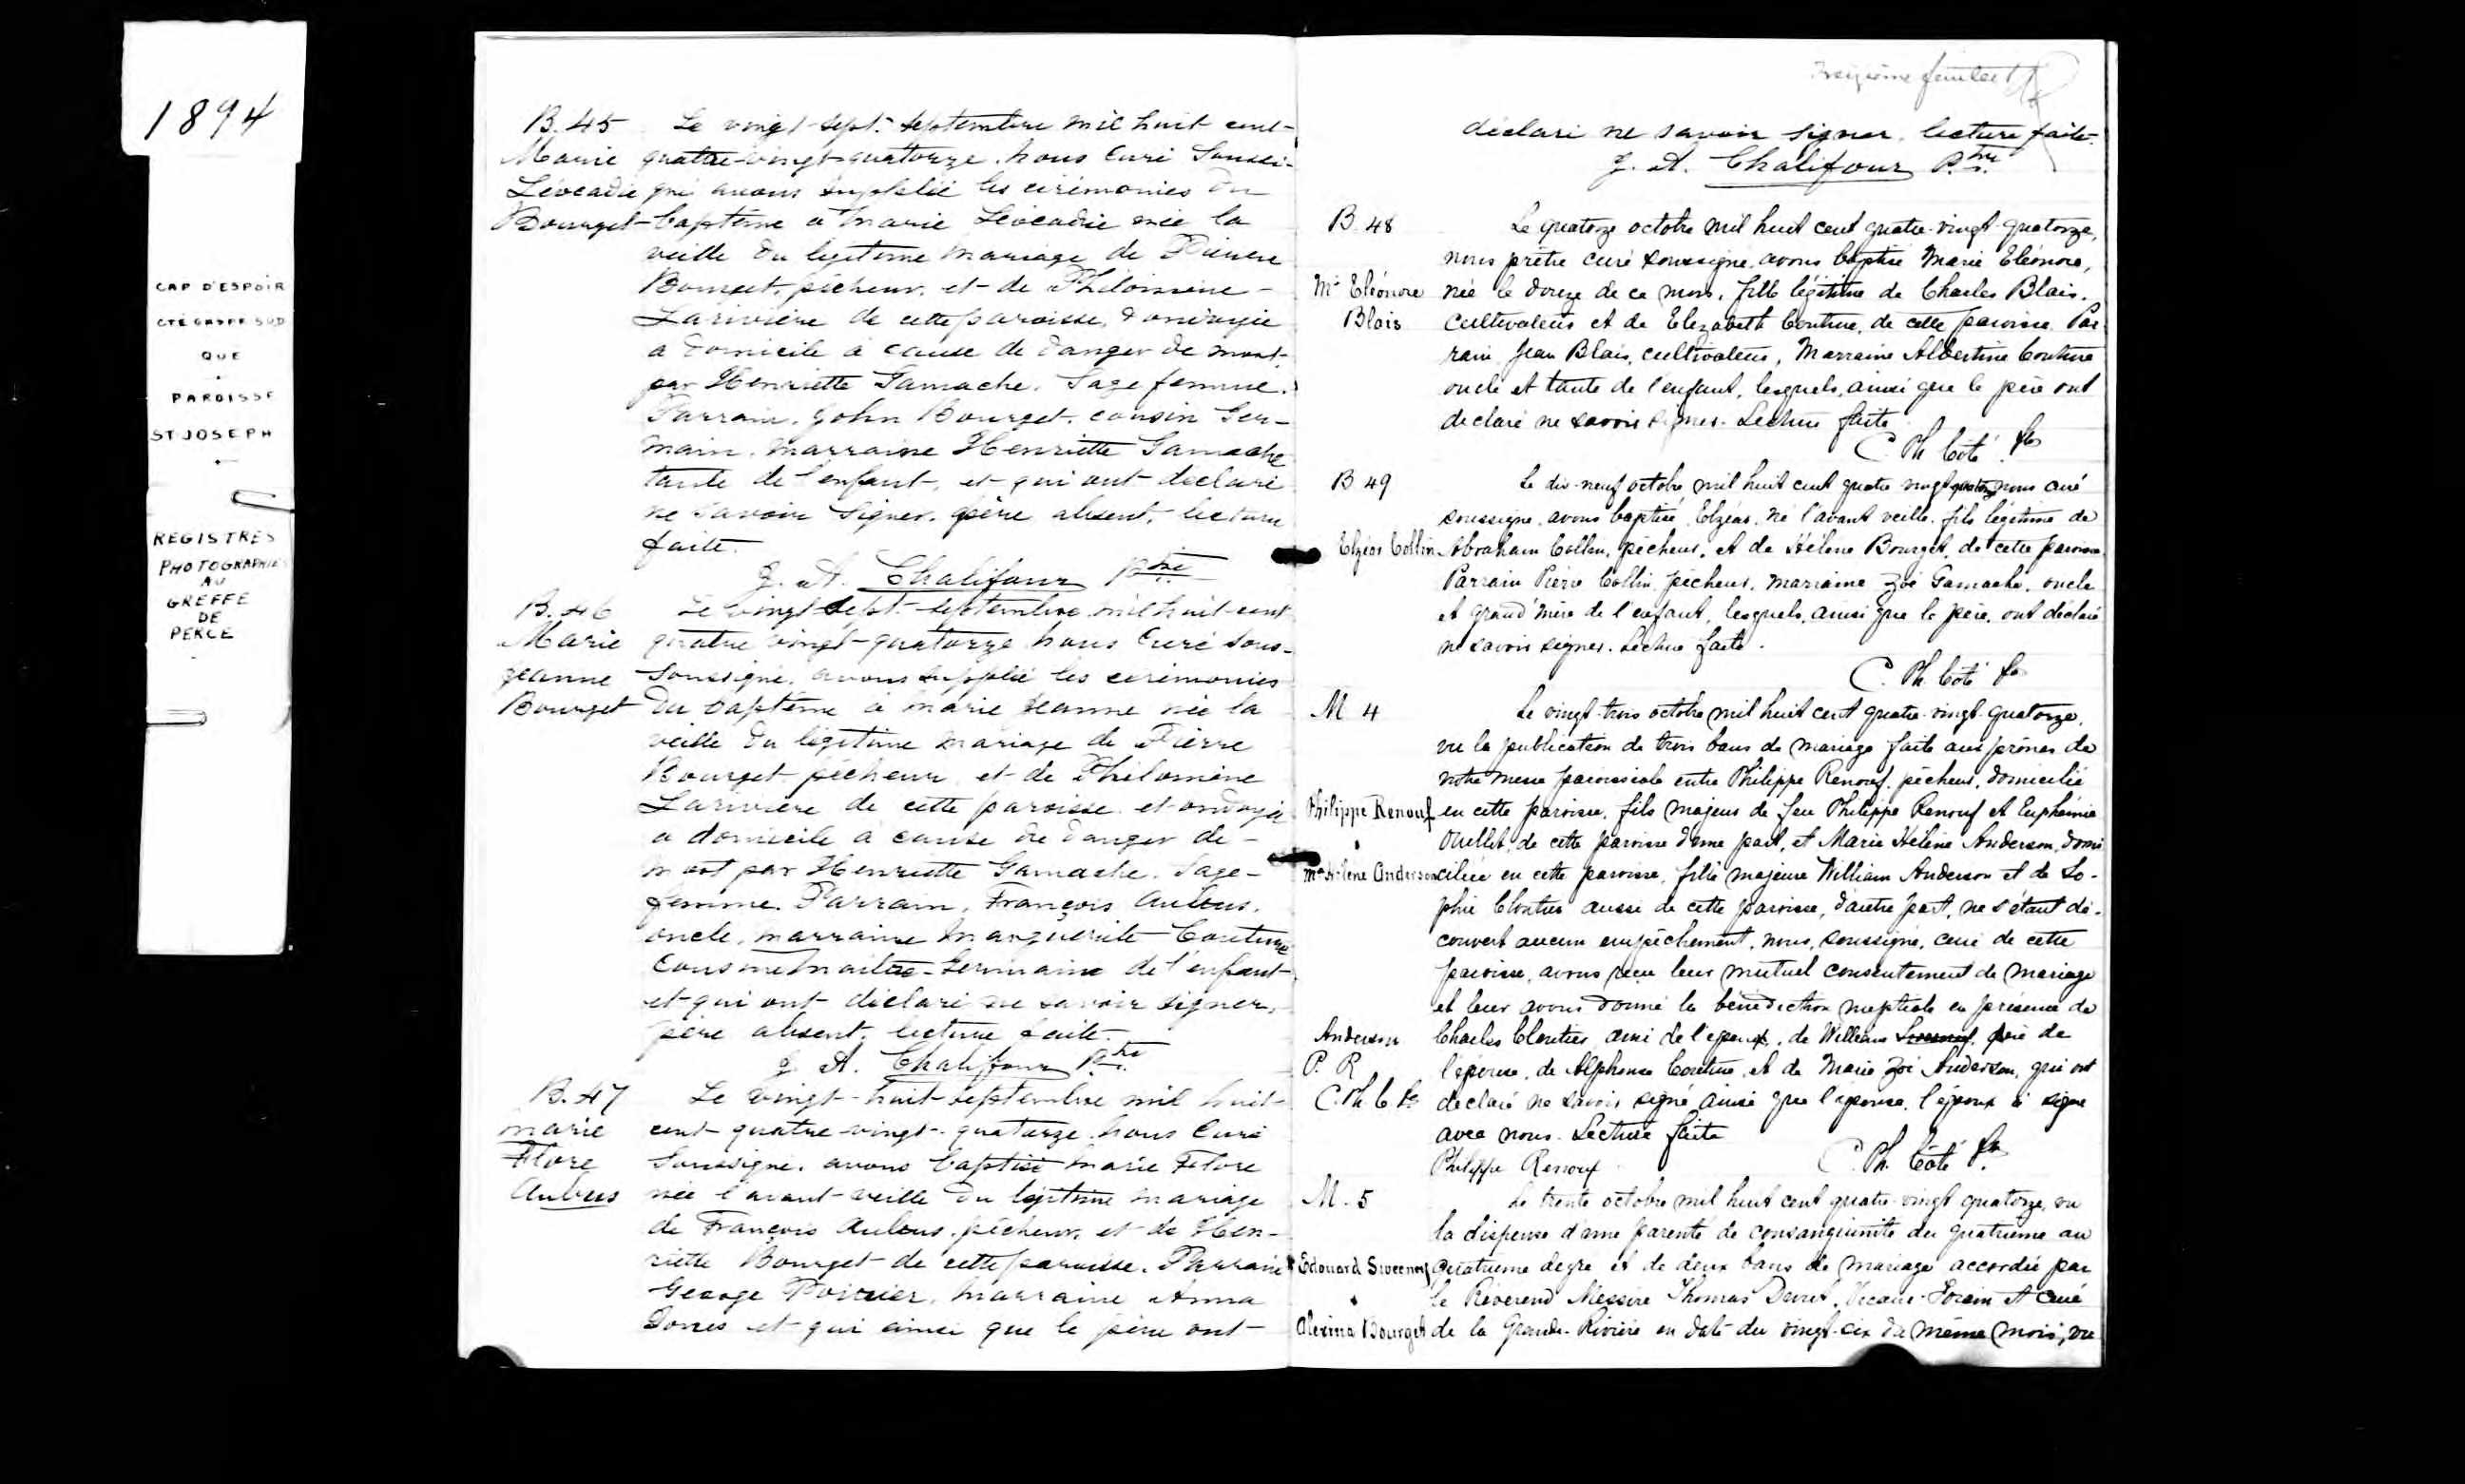 1894
CAP D'ESPOIR
CTÉ GASPE SUD
QUE
PAROISSE
ST JOSEPH
REGISTRES
PHOTOGRAPHIÉS
AU
GREFFE
DE
PERCE
B. 45 Le vingt-sept septembre mil huit cent-
Marie quatre-vingt-quatorze. nous Curé Soussi-
Léocadie gné avons supplée les cérémonies du
Bourget baptême à Marie Léocadie née la
veille du légitime mariage de Pierre
Bourget, pêcheur, et de Philomène
Larivière de cette paroisse, ondoyée
a domicile à cause de danger de mort
par Henriette Gamache. Sage femme.
Parrain. John Bourget. cousin Ger-
main. marraine Henriette Gamache
tante de l'enfant, et qui ont déclaré
ne savoir signer. père absent. lecture
faite.
J. A. Chalifour Ptre
B. 46 Le vingt-sept-septembre mil huit-cent
Marie quatre vingt-quatorze nous Curé sous-
Jeanne soussigné. avons supplée les cérémonies
Bourget du baptême à marie Jeanne née la
veille du légitime mariage de Pierre
Bourget pêcheur et de Philomène
Larivière de cette paroisse et ondoyée
a domicile a cause de danger de-
mort par Henriette Gamache. Sage-
femme. Parrain. François
oncle. marraine Marguerite Couture
Germaine de l'enfant
et qui ont déclaré ne savoir signer,
père absent. lecture faite.
J. A. Chalifour Ptre
B. 47 Le vingt-huit-septembre mil huit-
marie cent-quatre-vingt-quatorze. nous Curé
Flore Soussigné. avons baptisé marie Flore
née l'avant-veille du légitime mariage
de François pêcheur, et de Hen-
riette Bourget de cette paroisse. Parrain
George Poirier. marraine Anna
et qui ainsi que le père ont-
Treizième feuillet
déclaré ne savoir signer. lecture faite.
J. A. Chalifour Ptre
B. 48 Le quatorze octobre mil huit cent quatre-vingt-quatorze,
nous prêtre curé soussigné, avons baptisé Marie Eléonore,
Mie Eléonore née le douze de ce mois, fille légitime de Charles Blais.
Blais cultivateur et de Elezabeth Couture, de cette paroisse. Par
rain Jean Blais, cultivateur, Marraine Albertine Couture
oncle et tante de l'enfant, lesquels, ainsi que le père ont
declaré ne savoir signer. Lecture faite
C. Ph. Côté Ptre
B 49 Le dix-neuf octobre mil huit cent quatre vingt quatorze nous curé
soussigné, avons baptisé Elzéar, né l'avant veille, fils légitime de
Elzéar Collin Abraham Collin, pêcheur, et de Hélène Bourget, de cette paroisse
Parrain Pierre Collin, pêcheur, marraine Zoé Gamache, oncle
et grand'mère de l'enfant, lesquels, ainsi que le père, ont déclaré
ne savoir signer. Lecture faite.
C. Ph. Côté Ptre
M 4 Le vingt-trois octobre mil huit cent quatre-vingt-quatorze,
vu la publication de trois bans de mariage faite aux prônes de
notre messe paroissiale entre Philippe Renouf, pêcheur, domicilié
Philippe Renouf en cette paroisse, fils majeur de feu Philippe Renouf et Euphémie
Ouellet, de cette paroisse d'une part, et Marie Hélène Anderson, domi
Mie Hélène Anderson ciliée en cette paroisse, fille majeure William Anderson et de So-
phie Cloutier aussi de cette paroisse, d'autre part, ne s'étant dé-
couvert aucun empêchement, nous, soussigné, curé de cette
paroisse, avons reçu leur mutuel consentement de mariage
et leur avons donné la bénédiction nuptiale en présence de
Anderson Charles Cloutier ami de l'époux, de William père de
P. R l'épouse, de Alphonse Couture, et de Marie Zoé Anderson, qui ont
C. Ph. C Ptre declaré ne savoir signé ainsi que l'épouse, l'époux a signé
avec nous. Lecture faite
Philippe Renouf C. Ph. Côté Ptre
M. 5 Le trente octobre mil huit cent quatre-vingt quatorze, vu
la dispense d'une parenté de consanguinité du quatrième au
Edouard Sweeney quatrième degré et de deux bans de mariage accordée par
le Révérend Messire Thomas Vicaire-Forain et curé
Alexina Bourget de la Grande-Rivière en date du vingt-six du même mois, vu